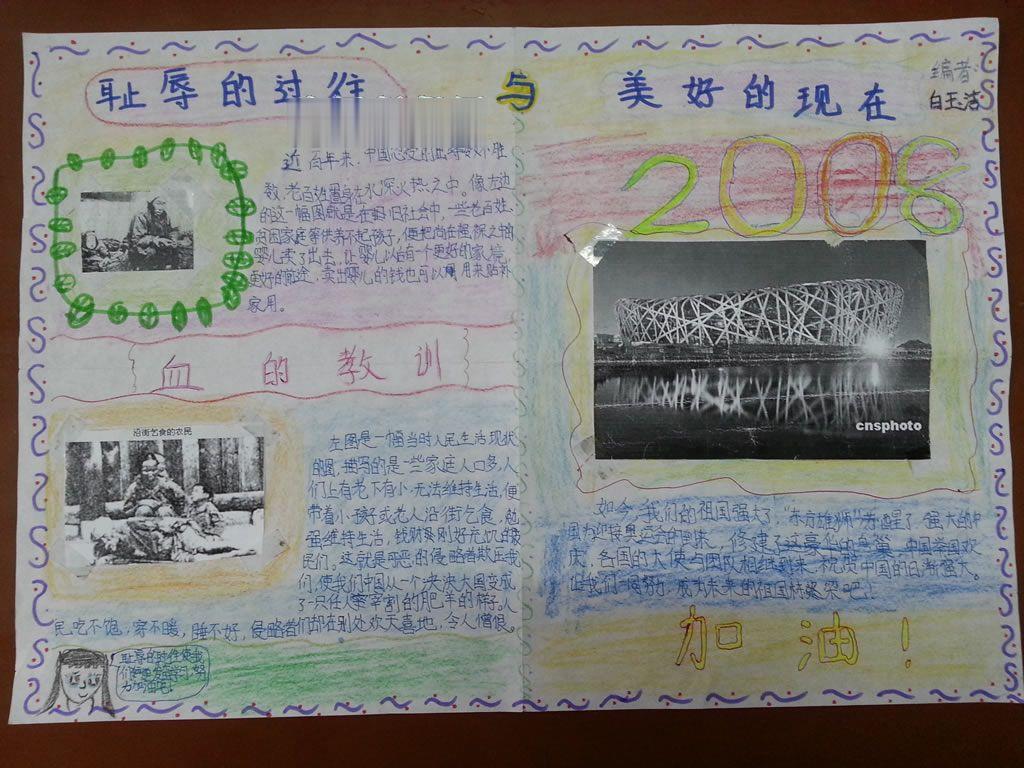 耻辱的过往
与
美好的现在
编者:
白玉洁
近百年来，中国
数，老百姓置身在水深火热之中。像左边
的这一幅图就是在
旧社会中，一些老百姓、
贫困家庭等供养不起孩子，便把尚在襁褓之中
婴儿卖了出去，让婴儿以后有一个更好的家境，
更好的前途，卖出婴儿的钱也可以用来贴补
家用。
血的教训
沿街乞食的农民
左图是一幅当时人民生活现状
的图，描写的是一些家庭人口多，人
们上有老下有小无法维持生活，便
带着小孩子或老人沿街乞食，勉
强维持生活，
民们。这就是可恶的侵略者欺压我
们，使我们中国从一个泱泱大国变成
了一只任人宰割的肥羊的样子。人
民吃不饱，穿不暖，睡不好，侵略者们却在别处欢天喜地，令人憎恨。
耻辱的
们
力加油吧！
2008
cnsphoto
如今，我们的祖国强大了，“东方雄狮”苏醒了，强大的中
国为迎接奥运会的到来，修建了这豪华的鸟巢，中国举国欢
庆，各国的大使与团队相继到来，祝贺中国的日渐强大。
让我们一起努力，成为未来的祖国栋梁吧！
加油！